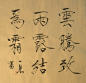 雲騰致
雨露結
為霜